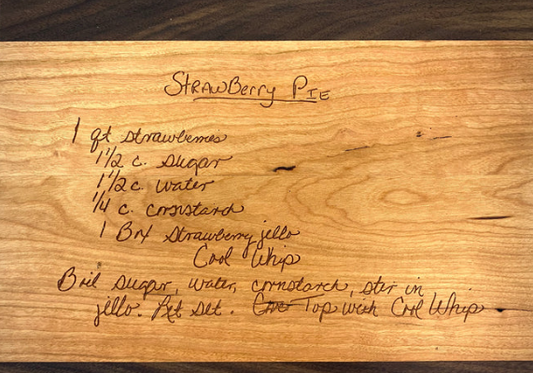 StrawBerry Pie
1 qt strawberries
1 1/2 c. sugar
1 1/2 c. water
1/4 c. cornstarch
1 Box strawberry jello
Cool Whip
Boil sugar, water, cornstarch, stir in
jello. Let set. Top with Cool Whip